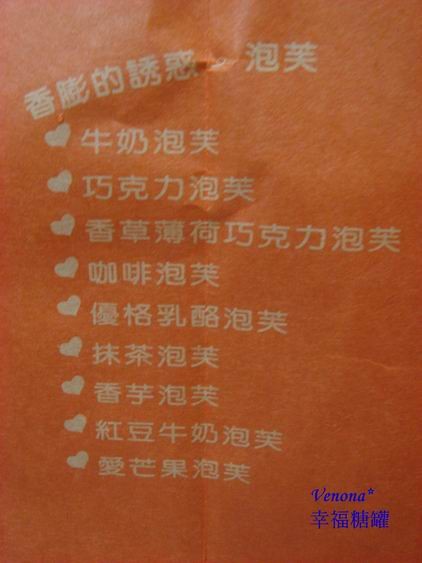 香膨的誘惑 泡芙
牛奶泡芙
巧克力泡芙
香草薄荷巧克力泡芙
咖啡泡芙
優格乳酪泡芙
抹茶泡芙
香芋泡芙
紅豆牛奶泡芙
愛芒果泡芙
Venona*
幸福糖罐